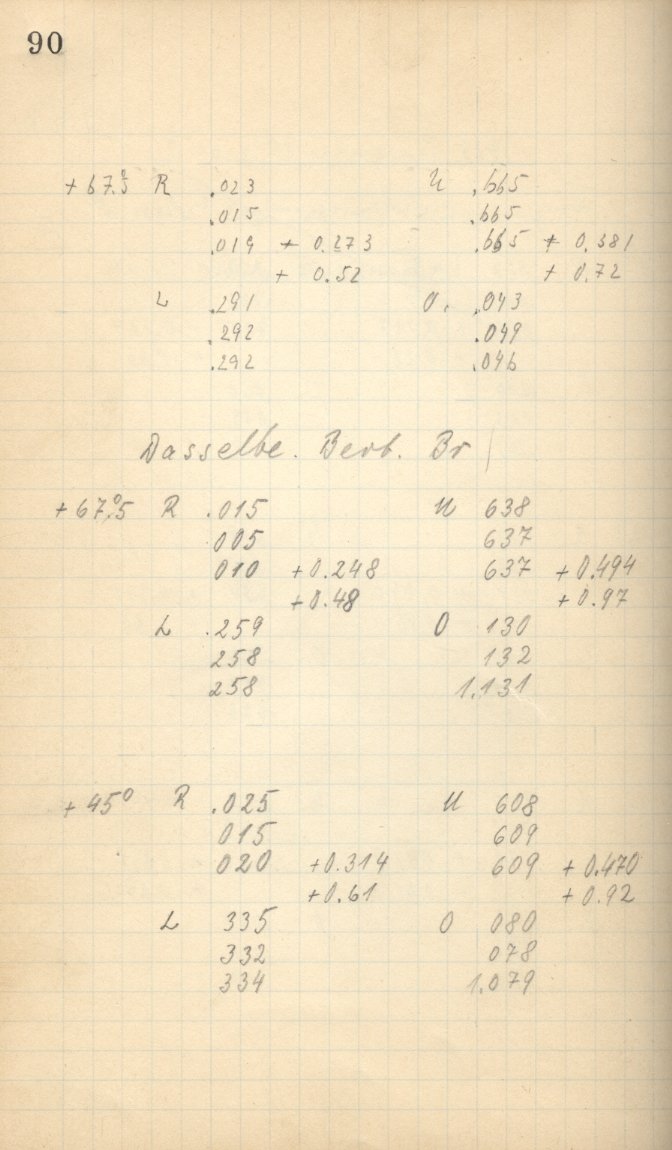 90
+ 67.°5 R .023 U .665
.015 .665
.019 + 0.273 .665 + 0.381
+ 0.52 + 0.72
L .291 O. .043
.292 .049
.292 .046
Dasselbe. Beob. Br
+ 67.°5 R .015 U 638
005 637
010 +0.248 637 +0.494
+0.48 +0.97
L .259 O 130
258 132
258 1.131
+ 45° R .025 U 608
015 609
020 +0.314 609 +0.470
+0.61 +0.92
L 335 O 080
332 078
334 1.079